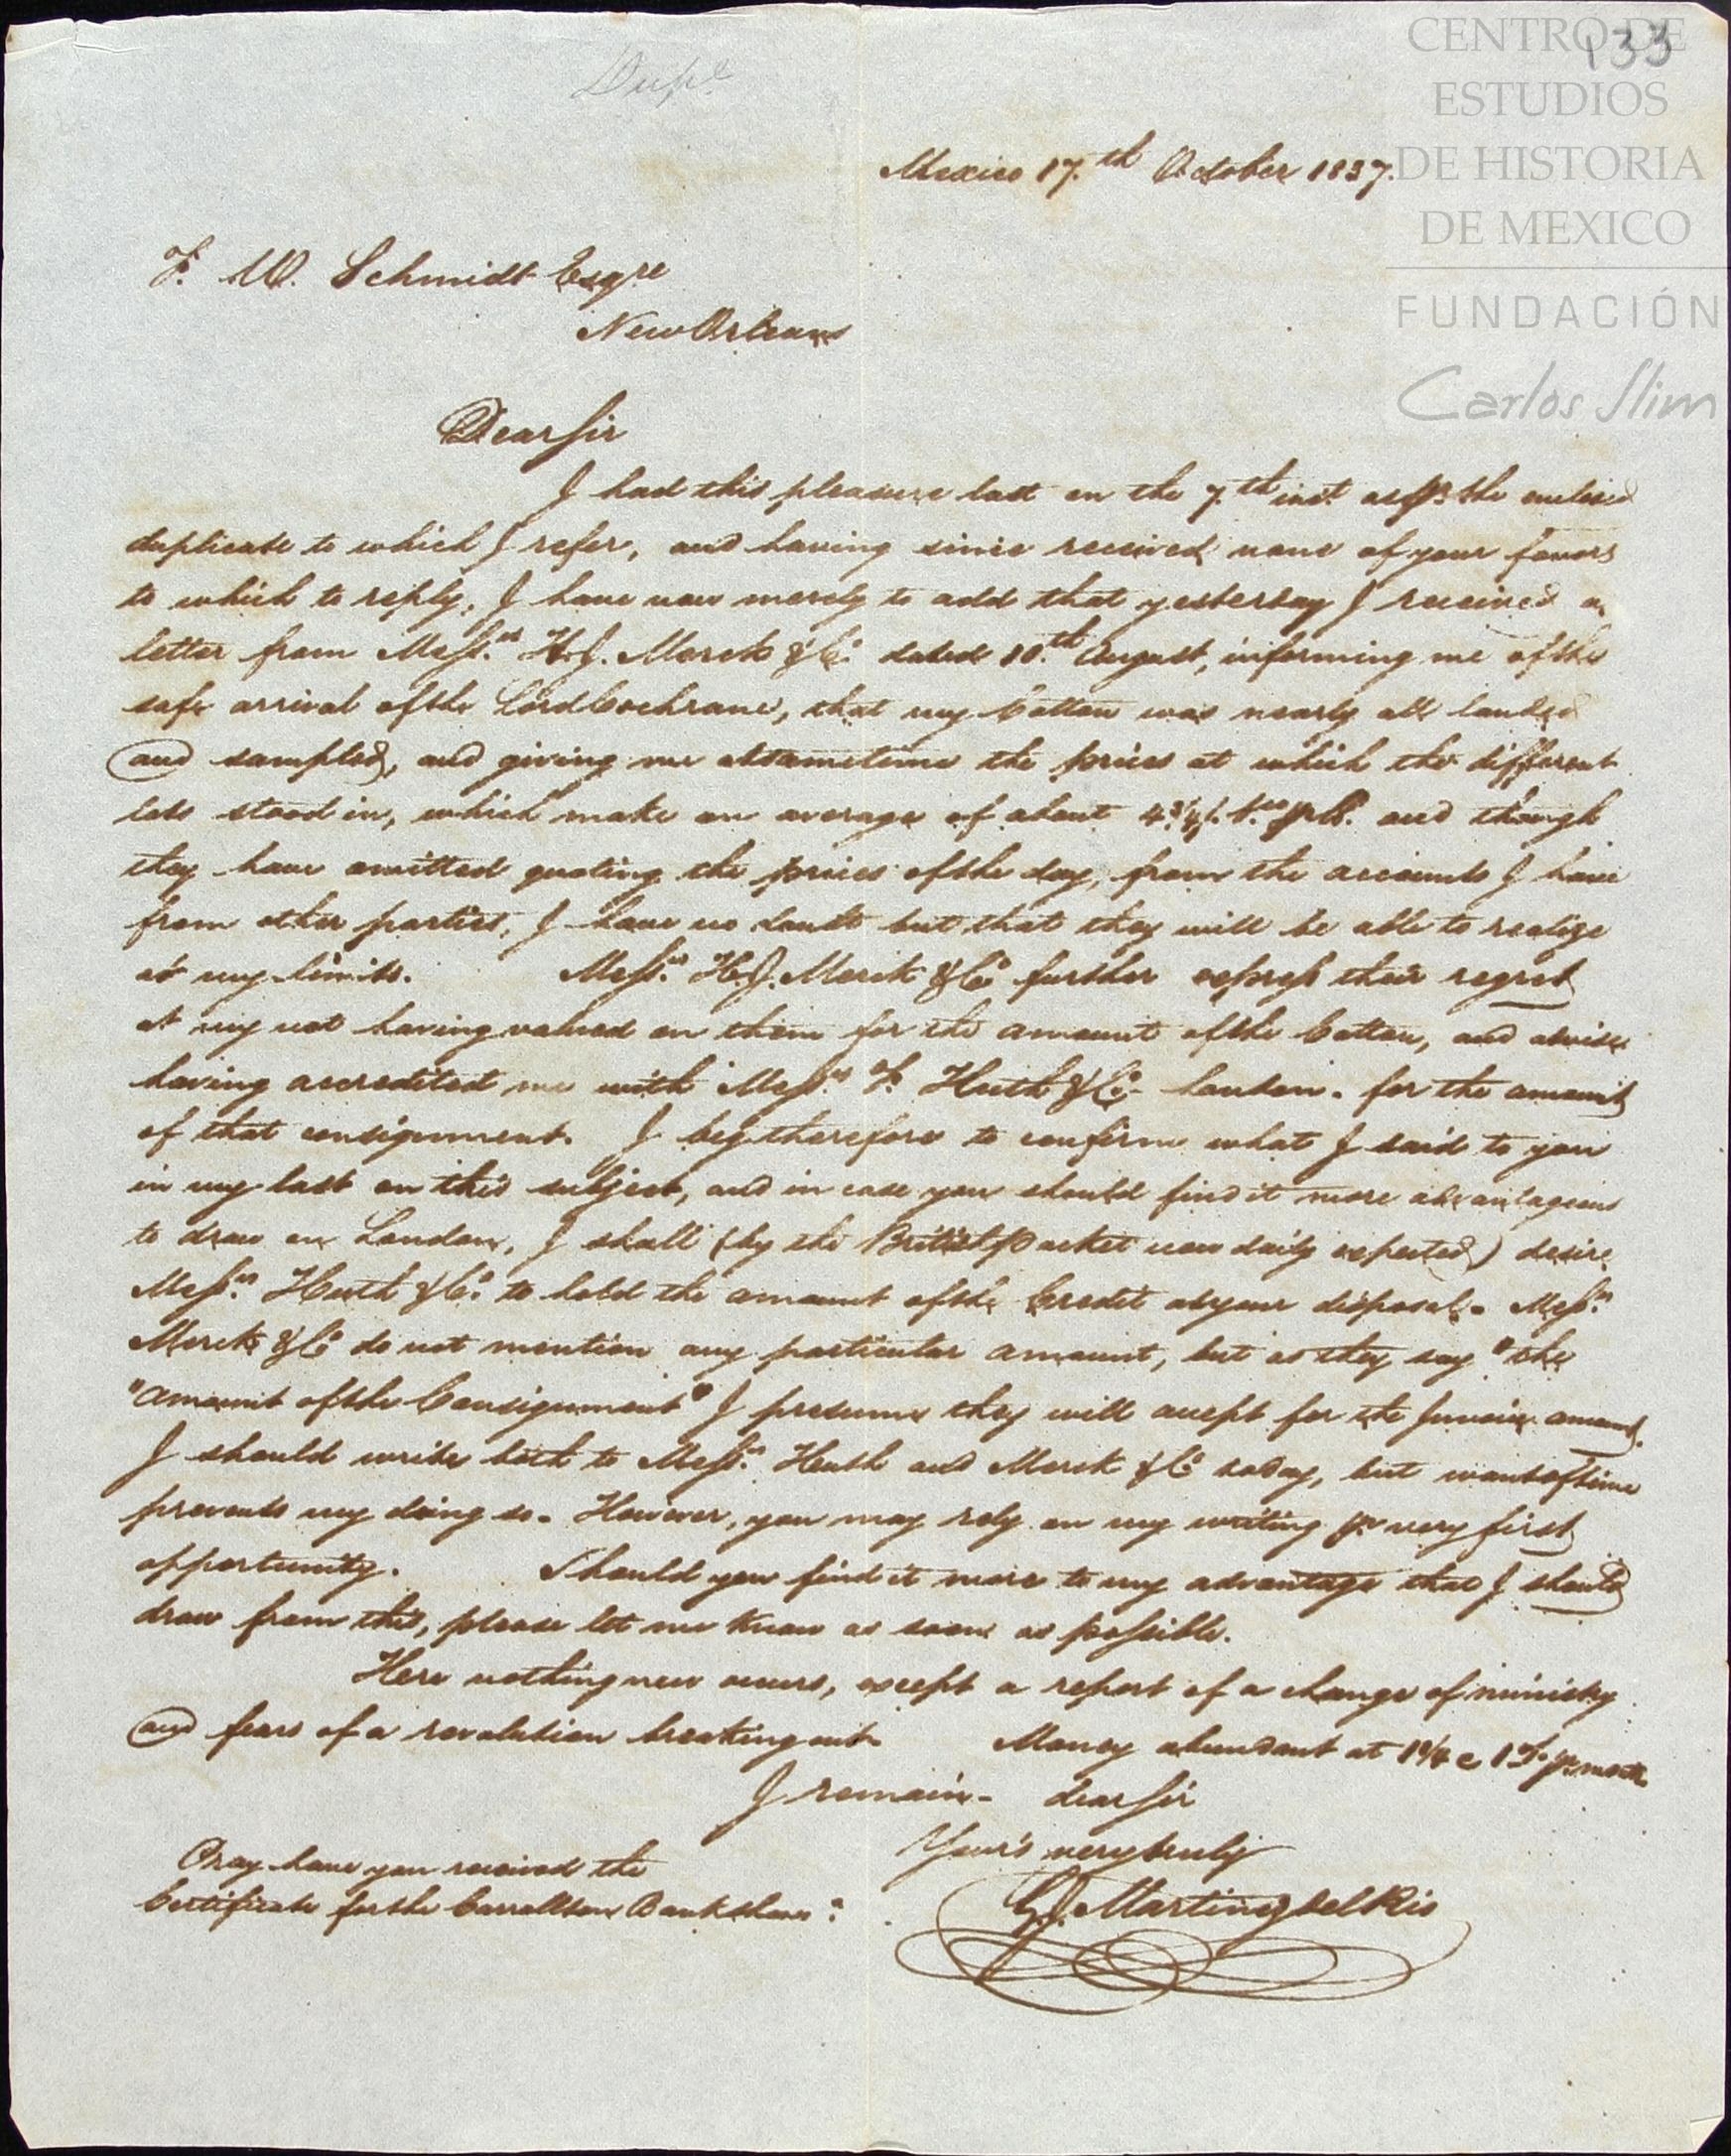 133
CENTRO DE
ESTUDIOS
DE HISTORIA
DE MEXICO
FUNDACIÓN
Carlos Slim
Dupe
Mexico 17.th October 1837.
F. W. Schmidt Esqre
New Orleans
Dear Sir
I had this pleasure last on the 7.th inst. as pr. the enclosed
duplicate to which I refer, and having since received none of your favors
to which to reply, I have now merely to add that yesterday I received a
letter from Messrs. H. J. Merck & Co. dated 10.th August, informing me of the
safe arrival of the Lord Cochrane, that my Cotton was nearly all landed
and sampled, and giving me at sametime the prices at which the different
lots stood in, which make an average of about 4 3/4 and though
they have omitted quoting the prices of the day, from the accounts I have
from other parties, I have no doubt but that they will be able to realize
at my limits. Messrs. H. J. Merck & Co. further express their regret
at my not having valued on them for the amount of the Cotton, and advise
having accredited me with Messrs. F. Huth & Co. London. for the amount
of that consignment. I beg therefore to confirm what I said to you
in my last on this subject, and in case you should find it more advantageous
to draw on London, I shall (by the British Packet now daily expected) desire
Messrs. Huth & Co. to hold the amount of the Credit at your disposal. Messrs.
Merck & Co do not mention any particular amount, but as they say "the
"amount of the Consignment" I presume they will accept for the Invoice amount.
I should write both to Messrs. Huth and Merck & Co today, but want of time
prevents my doing so. However, you may rely on my writing pr. very first
opportunity. Should you find it more to my advantage that I should
draw from this, please let me know as soon as possible.
Here nothing new occurs, except a report of a change of ministry
and fears of a revolution breaking out. Money abundant at pr. month
I remain. dear Sir
Your's very truly
G. J. Martinez del Rio
Pray have you received the
Certificate for the Carrollton Bank shares?